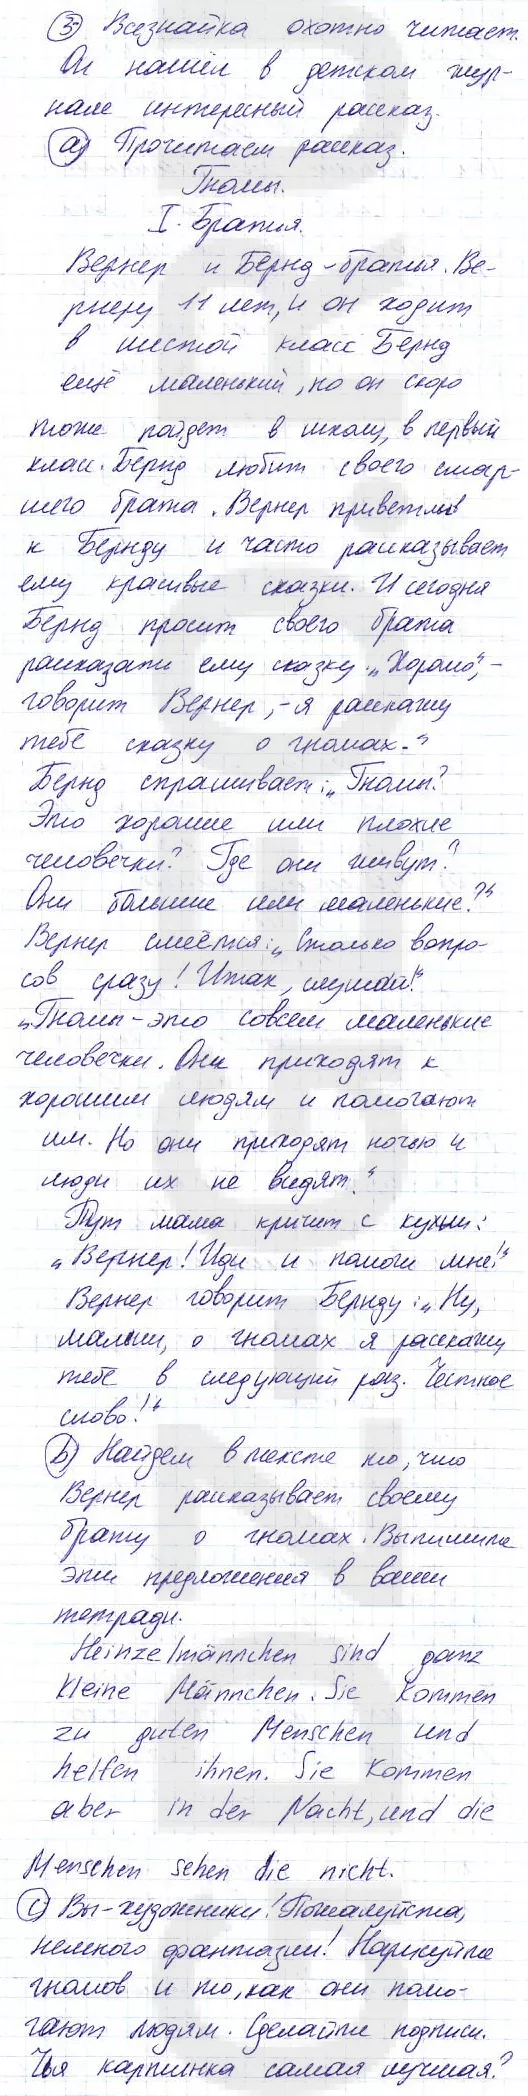 ③ Всезнайка охотно читает.
Он нашёл в детском жур-
нале интересный рассказ.
ⓐ Прочитаем рассказ.
Гномы.
I. Братья.
Вернер и Бернд - братья. Ве-
рнеру 11 лет, и он ходит
в шестой класс. Бернд
ещё маленький, но он скоро
тоже пойдет в школу, в первый
класс. Бернд любит своего стар-
шего брата. Вернер приветлив
к Бернду и часто рассказывает
ему красивые сказки. И сегодня
Бернд просит своего брата
рассказать ему сказку. „Хорошо“, -
говорит Вернер, - я расскажу
тебе сказку о гномах.“
Бернд спрашивает: „Гномы?
Это хорошие или плохие
человечки? Где они живут?
Они большие или маленькие?“
Вернер смеётся: „Столько вопро-
сов сразу! Итак, слушай!“
„Гномы - это совсем маленькие
человечки. Они приходят к
хорошим людям и помогают
им. Но они приходят ночью и
люди их не видят.“
Тут мама кричит с кухни:
„Вернер! Иди и помоги мне!“
Вернер говорит Бернду: „Ну,
малыш, о гномах я расскажу
тебе в следующий раз. Честное
слово!“
ⓑ Найдем в тексте то, что
Вернер рассказывает своему
брату о гномах. Выпишите
эти предложения в ваши
тетради.
Heinzelmännchen sind ganz
kleine Männchen. Sie kommen
zu guten Menschen und
helfen ihnen. Sie kommen
aber in der Nacht, und die
Menschen sehen die nicht.
ⓒ Вы - художники! Пожалуйста,
немного фантазии! Нарисуйте
гномов и то, как они помо-
гают людям. Сделайте подписи.
Чья картинка самая лучшая?